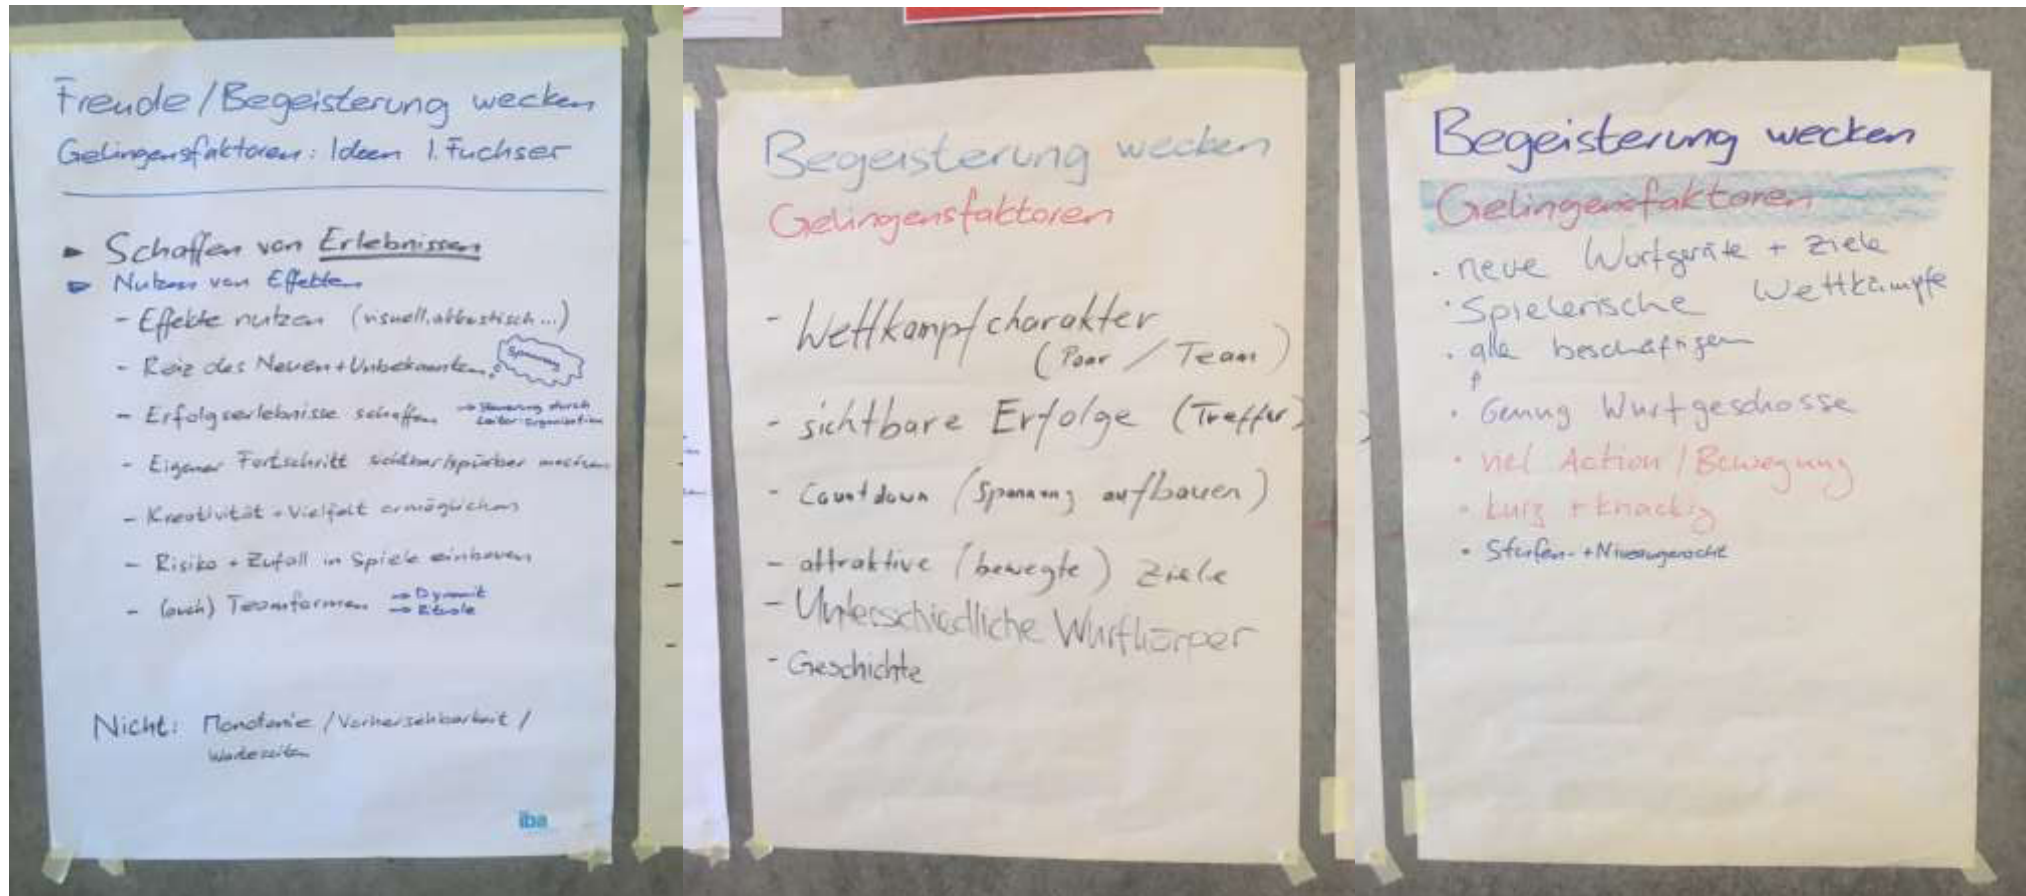 Freude/Begeisterung wecken
Gelingensfaktoren: Ideen I. Fuchser
► Schaffen von Erlebnissen
► Nutzen von Effekten
- Effekte nutzen (visuell, akkustisch...)
- Reiz des Neuen + Unbekannten
Spannung
- Erfolgserlebnisse schaffen → Steuerung durch
Leiter: Organisation
- Eigener Fortschritt sichtbar/spürbar machen
- Kreativität + Vielfalt ermöglichen
- Risiko + Zufall in Spiele einbauen
- (auch) Teamformen → Dynamik
→ Rituale
Nicht: Monotonie / Vorhersehbarkeit /
Wartezeiten
iba
Begeisterung wecken
Gelingensfaktoren
- Wettkampfcharakter
(Paar / Team)
- sichtbare Erfolge (Treffer)
- Countdown (Spannung aufbauen)
- attraktive (bewegte) Ziele
- Unterschiedliche Wurfkörper
- Geschichte
Begeisterung wecken
Gelingensfaktoren
· neue Wurfgeräte + Ziele
· Spielerische Wettkämpfe
· alle beschäftigen
↑
· Genug Wurfgeschosse
· viel Action / Bewegung
· kurz + knackig
· Stufen- + Niveaugerecht